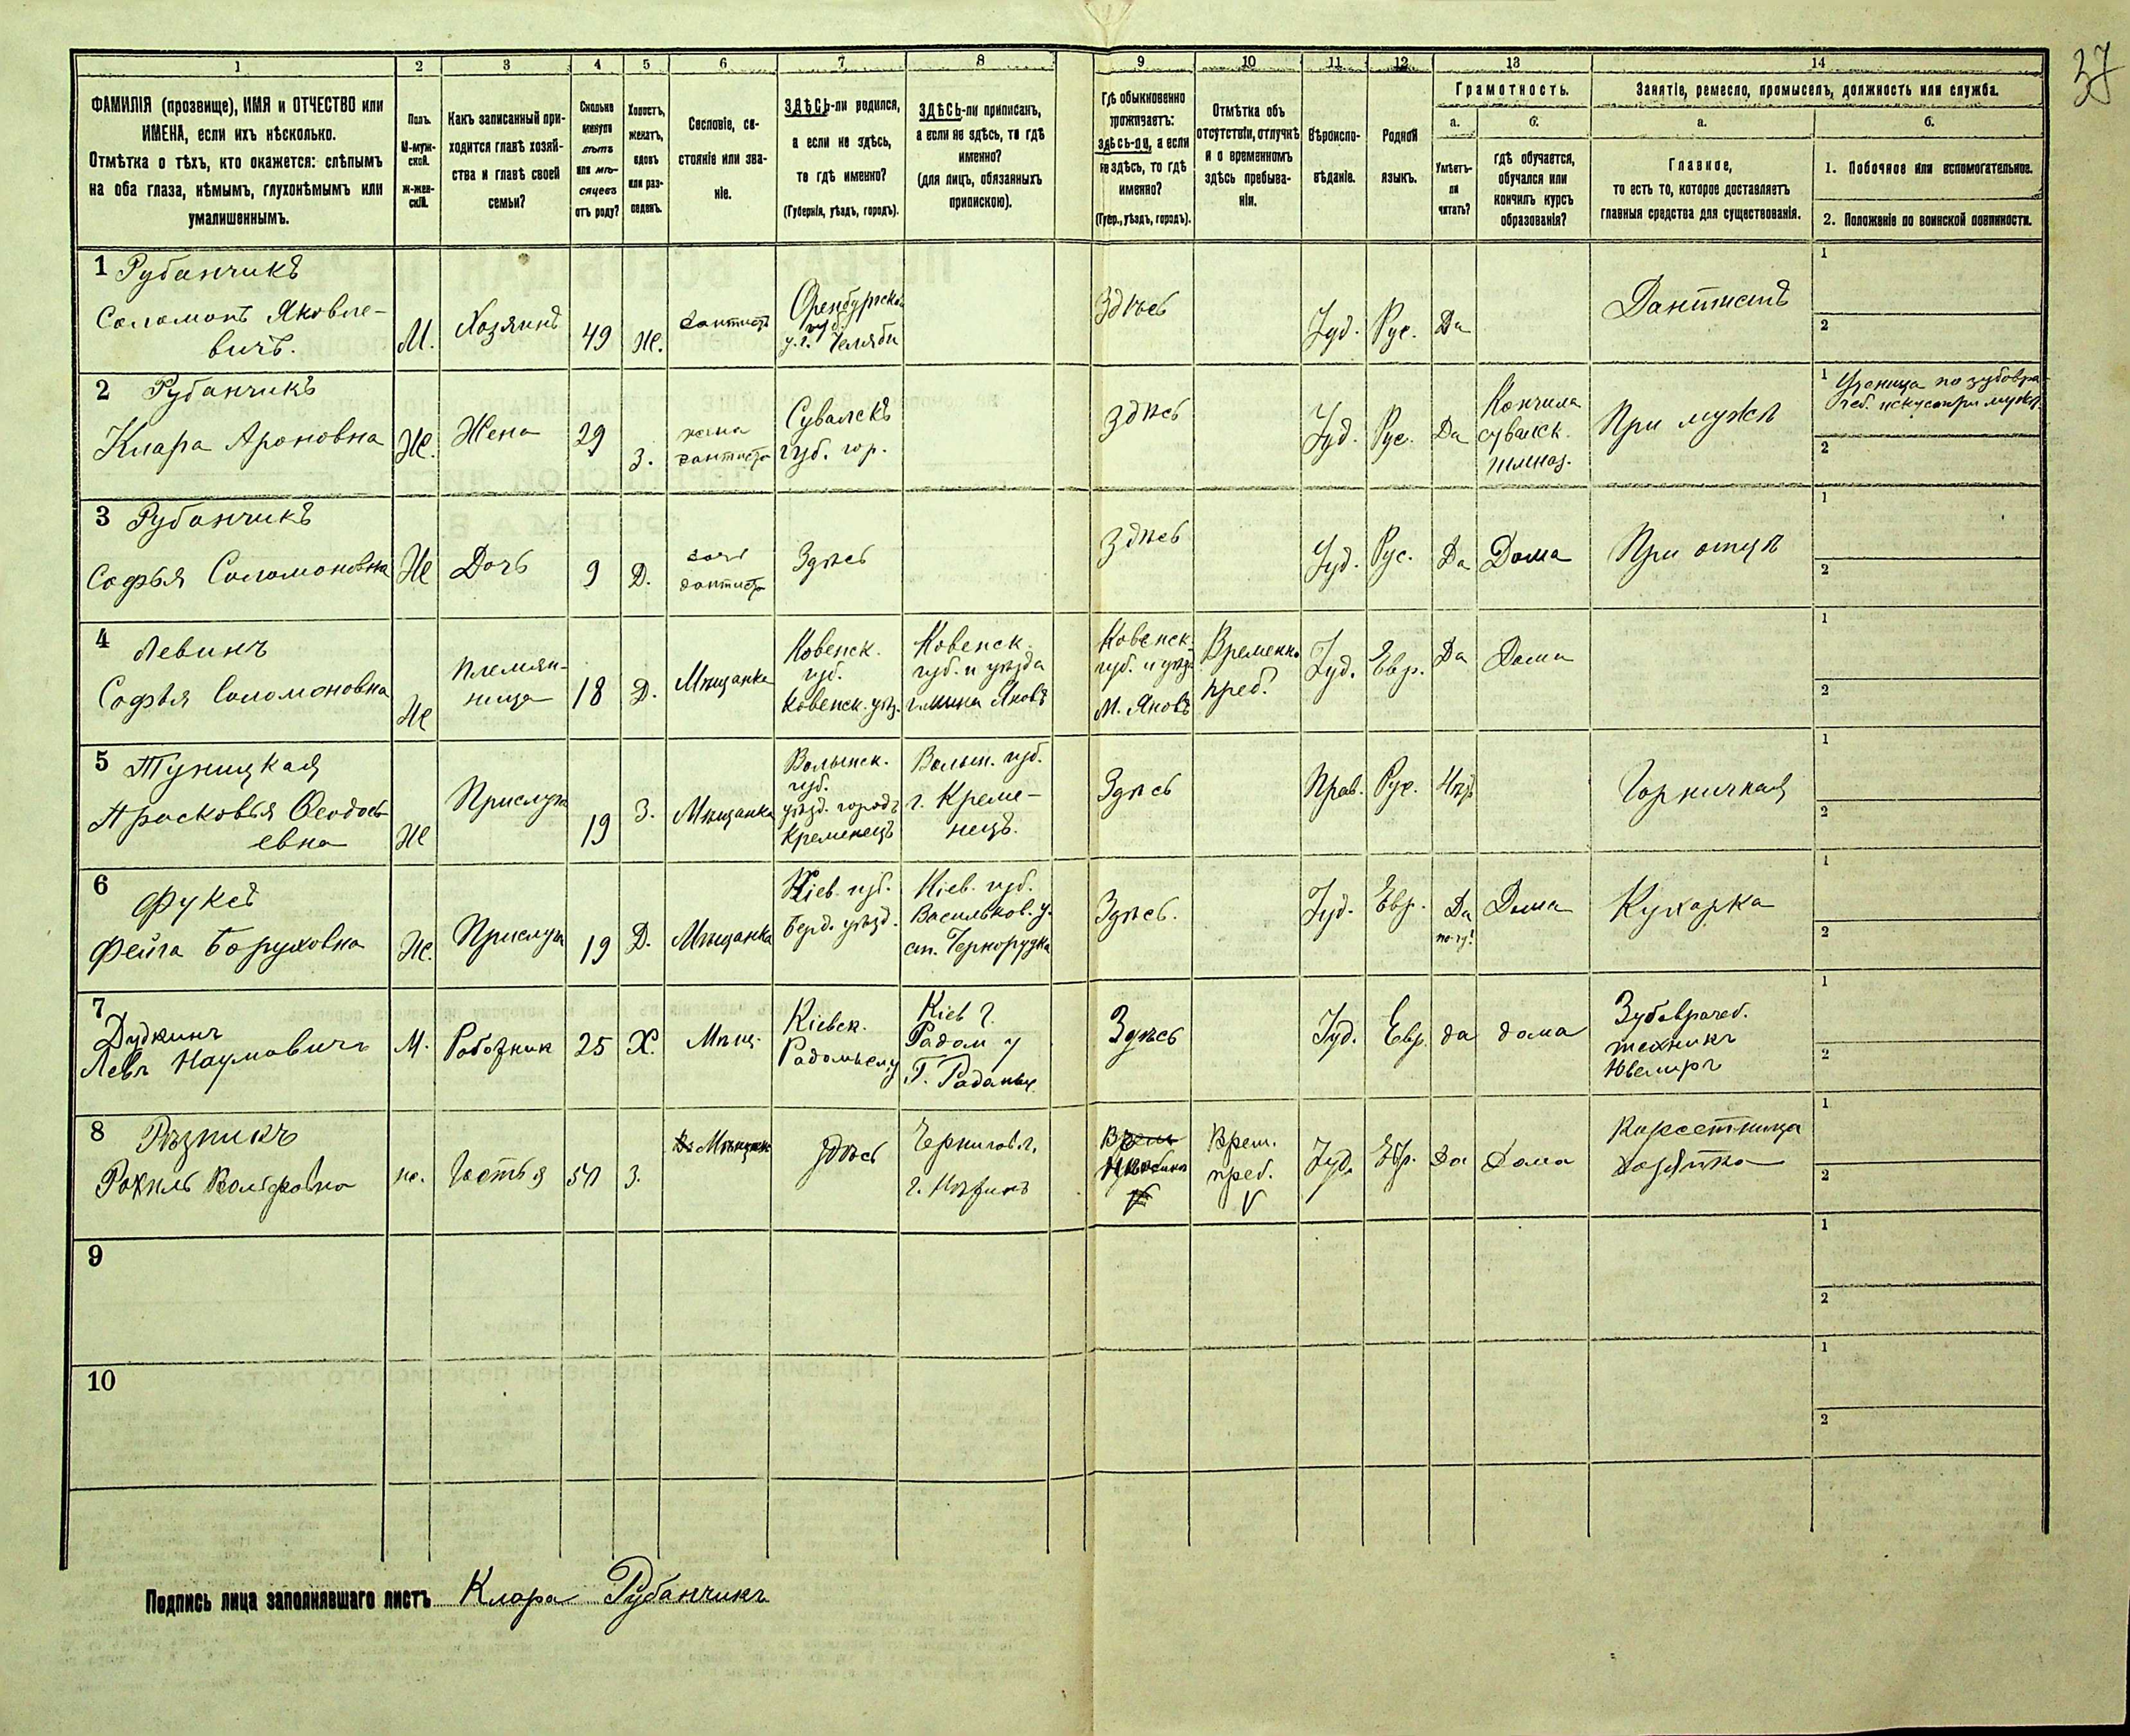 37
1 2 3 4 5 6 7 8 9 10 11 12 13 14
ФАМИЛІЯ (прозвище), ИМЯ и ОТЧЕСТВО или
ИМЕНА, если ихъ нѣсколько.
Отмѣтка о тѣхъ, кто окажется: слѣпымъ
на оба глаза, нѣмымъ, глухонѣмымъ или
умалишеннымъ.
Полъ.
М-муж-
ской.
Ж-жен-
скій.
Какъ записанный при-
ходится главѣ хозяй-
ства и главѣ своей
семьи?
Сколько
минуло
лѣтъ
или мѣ-
сяцевъ
отъ роду?
Холостъ,
женатъ,
вдовъ
или раз-
веденъ.
Сословіе, со-
стояніе или зва-
ніе.
ЗДѢСЬ-ли родился,
а если не здѣсь,
то гдѣ именно?
(Губернія, уѣздъ, городъ).
ЗДѢСЬ-ли приписанъ,
а если не здѣсь, то гдѣ
именно?
(для лицъ, обязанныхъ
припискою).
Гдѣ обыкновенно
проживаетъ:
здѣсь-ли, а если
не здѣсь, то гдѣ
именно?
(Губер., уѣздъ, городъ).
Отмѣтка объ
отсутствіи, отлучкѣ
и о временномъ
здѣсь пребыва-
ніи.
Вѣроиспо-
вѣданіе.
Родной
языкъ.
Грамотность.
а.
Умѣетъ-
ли
читать?
б.
гдѣ обучается,
обучался или
кончилъ курсъ
образованія?
Занятіе, ремесло, промыселъ, должность или служба.
а.
Главное,
то есть то, которое доставляетъ
главныя средства для существованія.
б.
1. Побочное или вспомогательное.
2. Положеніе по воинской повинности.
1 Рубанчикъ
Соломонъ Яковле-
вичъ.
М.
Хозяинъ
49
Ж.
дантистъ
Оренбургской
губ.
у. г. Челяби
Здѣсь
Іуд.
Рус.
Да
Дантистъ
1
2
2 Рубанчикъ
Клара Ароновна
Ж.
Жена
29
З.
жена
дантиста
Сувалскъ
губ. гор.
Здѣсь
Іуд.
Рус.
Да
Кончила
сувалск.
гимназ.
При мужѣ
1 Ученица по зубовра-
чеб. искус. при мужѣ
2
3 Рубанчикъ
Софья Соломоновна
Ж
Дочь
9
Д.
дочь
дантиста
Здѣсь
Здѣсь
Іуд.
Рус.
Да
Дома
При отцѣ
1
2
4 Левинъ
Софья Соломоновна
Ж
Племян-
ница
18
Д.
Мѣщанка
Ковенск.
губ.
Ковенск. уѣз.
Ковенск.
губ. и уѣзда
гмина Яновъ
Ковенск.
губ. и уѣз.
м. Яновъ
Временно
преб.
Іуд.
Евр.
Да
Дома
1
2
5 Туницкая
Прасковья Феодось
евна
Ж
Прислуга
19
З.
Мѣщанка
Волынск.
губ.
уѣзд. городъ
Кременецъ
Волын. губ.
г. Креме-
нецъ.
Здѣсь
Прав.
Рус.
Нѣт
Горничная
1
2
6
Фуксъ
Фейга Боруховна
Ж.
Прислуга
19
Д.
Мѣщанка
Кіев. губ.
Берд. уѣзд.
Кіев. губ.
Васильков. у.
Чернорудка
Здѣсь.
Іуд.
Евр.
Да
Дома
Кухарка
1
2
7
Дудкинъ
Левъ Наумовичъ
М.
Работник
25
Х.
Мѣщ.
Кіевск.
Радомысл у
Кіев г.
Радом у
Здѣсь
Іуд.
Евр.
да
дома
Зубоврачеб.
техникъ
Ювелиръ
1
2
8 Рѣзникъ
Рохиль Вольфовна
ж.
Гостья
54
З.
Мѣщанк
здѣсь
Чернигов. г.
г. Нѣжинъ
Врем.
преб.
V
Іуд.
Евр.
Да
Дома
Корсетница
хозяйка
1
2
9
1
2
10
1
2
Подпись лица заполнявшаго листъ Клара Рубанчикъ